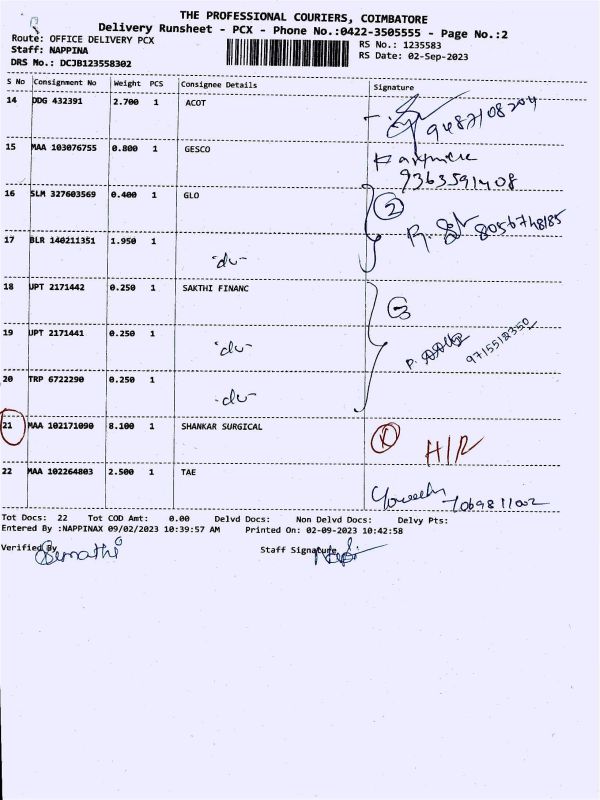 THE PROFESSIONAL COURIERS, COIMBATORE
Delivery Runsheet - PCX - Phone No.:0422-3505555 - Page No.:2
Route: OFFICE DELIVERY PCX
Staff: NAPPINA
DRS No.: DCJB123558302
RS No.: 1235583
RS Date: 02-Sep-2023
S No Consignment No Weight PCS Consignee Details Signature
14 DDG 432391 2.700 1 ACOT
9487108204
15 MAA 103076755 0.800 1 GESCO
9363591408
16 SLM 327603569 0.400 1 GLO
2
8056748185
17 BLR 140211351 1.950 1 "du-
18 UPT 2171442 0.250 1 SAKTHI FINANC
3
19 UPT 2171441 0.250 1 "du-
9715512350
20 TRP 6722290 0.250 1 -du-
21 MAA 102171090 8.100 1 SHANKAR SURGICAL
X H/R
22 MAA 102264803 2.500 1 TAE
7069811002
Tot Docs: 22 Tot COD Amt: 0.00 Delvd Docs: Non Delvd Docs: Delvy Pts:
Entered By :NAPPINAX 09/02/2023 10:39:57 AM Printed On: 02-09-2023 10:42:58
Verified By Staff Signature